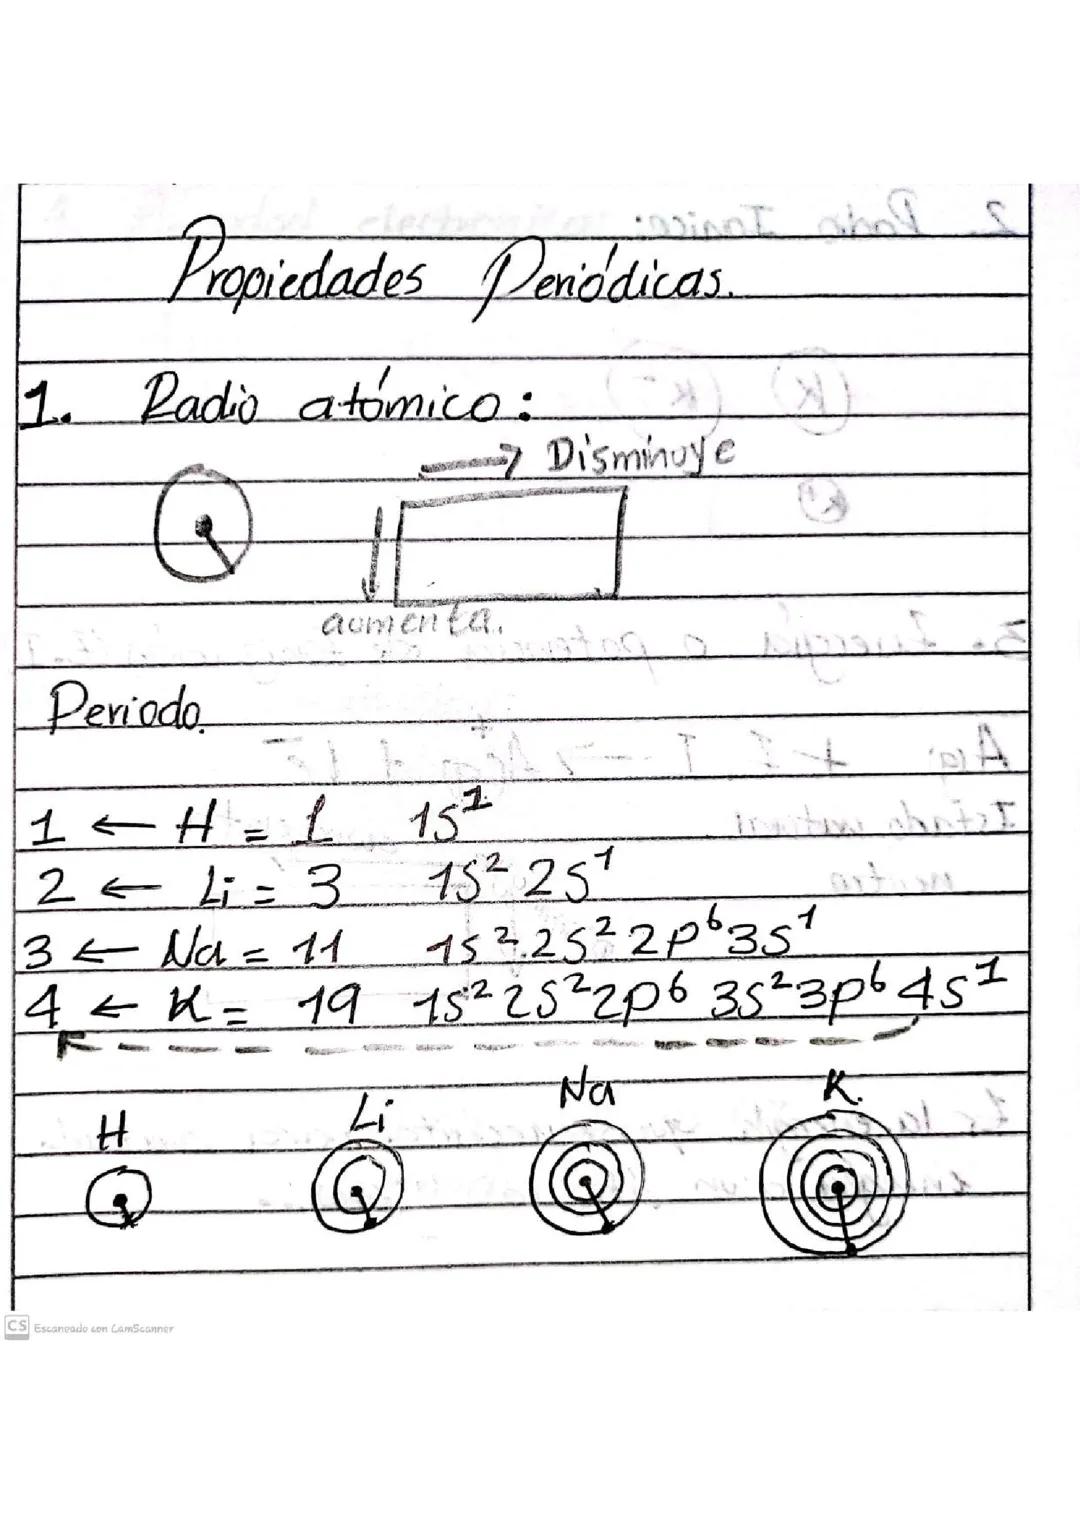 Propiedades Periódicas.
1. Radio atómico:
→ Disminuye
↓
aumenta.
Periodo.
1 ← H = 1 1s¹
2 ← Li = 3 1s² 2s¹
3 ← Na = 11 1s² 2s² 2p⁶ 3s¹
4 ← K = 19 1s² 2s² 2p⁶ 3s² 3p⁶ 4s¹
H Li Na K.
CS Escaneado con CamScanner